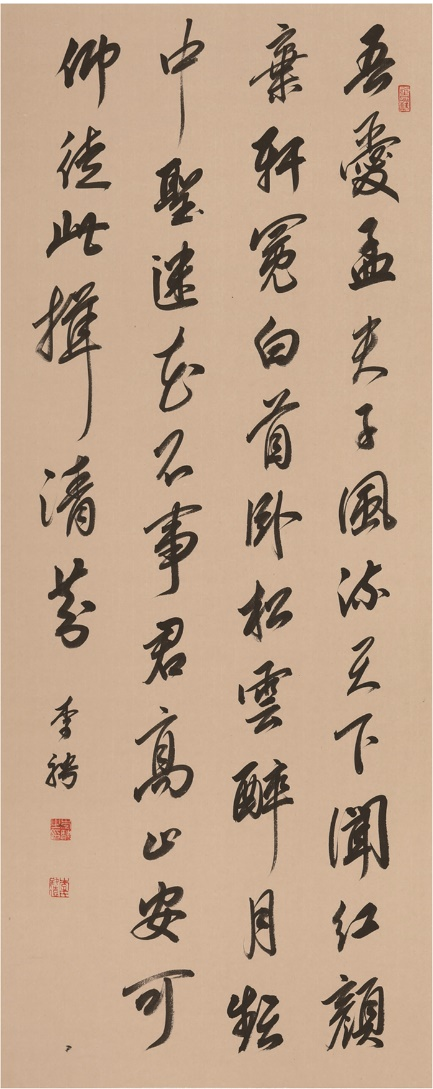 吾愛孟夫子風流天下聞紅顏
棄軒冕白首臥松雲醉月頻
中聖迷花不事君高山安可
仰徒此揖清芬